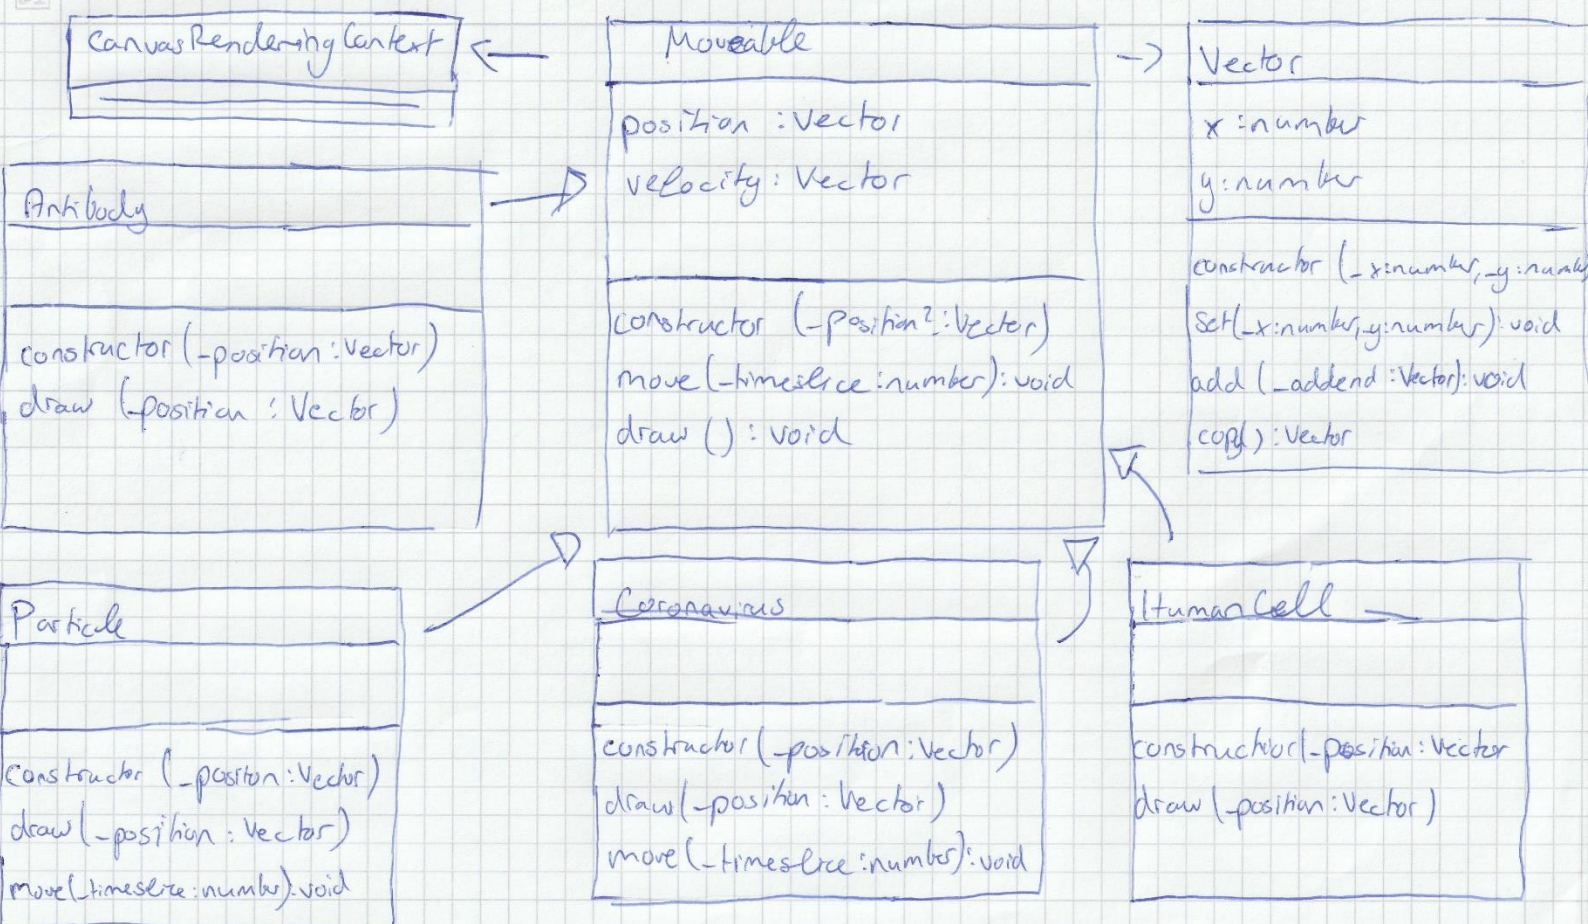 CanvasRenderingContext
Moveable
position : Vector
velocity : Vector
constructor (_position? : Vector)
move (_timeslice : number) : void
draw () : void
Vector
x : number
y : number
constructor (_x : number, _y : number
set(_x : number, _y : number) : void
add (_addend : Vector) : void
copy() : Vector
Antibody
constructor (_position : Vector)
draw (_position : Vector)
Particle
constructor (_positon : Vector)
draw (_position : Vector)
move(_timeslice : number) : void
Coronavirus
constructor (_position : Vector)
draw (_position : Vector)
move (_timeslice : number) : void
HumanCell
constructior(_position : Vector
draw (_position : Vector)